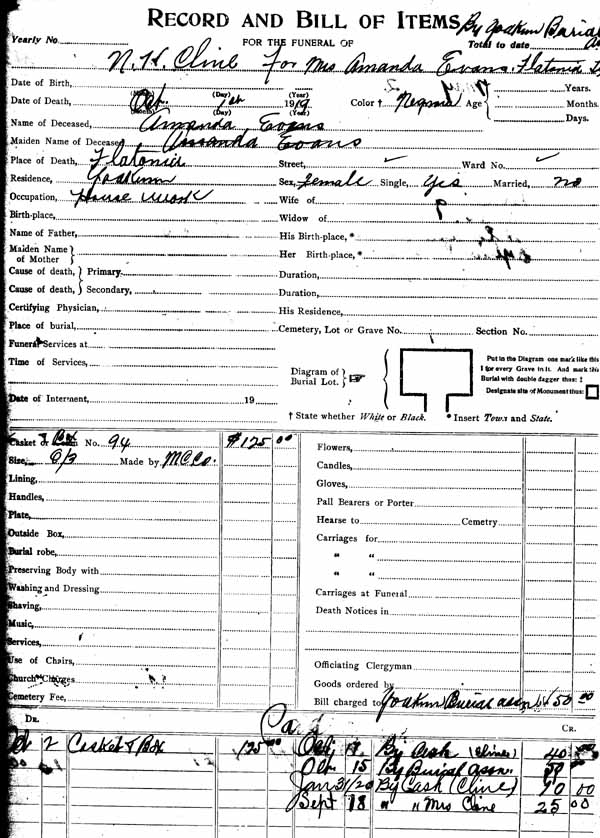 RECORD AND BILL OF ITEMS By Yoakum Burial
Yearly No. FOR THE FUNERAL OF Total to date
N. H. Cline For Mrs Amanda Evans. Flatonia
Date of Birth, Years.
Date of Death, Oct. (Day) (Year) 1919 Color † Age Months.
Days.
Name of Deceased, Amanda Evans
Maiden Name of Deceased, Amanda Evans
Place of Death, Flatonia Street, Ward No.
Residence, Yoakum Sex, Female Single, Yes Married, no
Occupation, House Work Wife of
Birth-place, Widow of
Name of Father, His Birth-place, *
Maiden Name of Mother } Her Birth-place, *
Cause of death, } Primary. Duration,
Cause of death, } Secondary, Duration,
Certifying Physician, His Residence,
Place of burial, Cemetery, Lot or Grave No. Section No.
Funeral Services at
Time of Services,
Diagram of Burial Lot. }
Put in the Diagram one mark like this
I for every Grave in it. And mark this
Burial with double dagger thus: ‡
Designate site of Monument thus:
Date of Interment, 19
† State whether White or Black. * Insert Town and State.
Casket or Box No. 94 $125 00
Size, 6/3 Made by M C Co.
Lining,
Handles,
Plate,
Outside Box,
Burial robe,
Preserving Body with
Washing and Dressing
Shaving,
Music,
Services,
Use of Chairs,
Church Charges
Cemetery Fee,
Flowers,
Candles,
Gloves,
Pall Bearers or Porter
Hearse to Cemetry
Carriages for
" "
" "
Carriages at Funeral
Death Notices in
Officiating Clergyman
Goods ordered by
Bill charged to Yoakum Burial assn 50 00
DR. CR.
2 Casket & Box 125 00 Oct By Cash (Cline) 40
Oct. 15 By Burial assn. 50
Jan 31/20 By Cash (Cline) 10 00
Sept 18 " " Mrs Cline 25 00